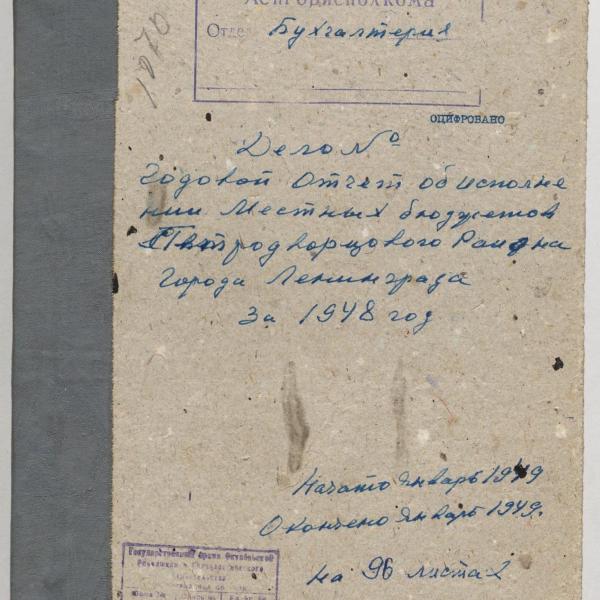 Ленгорисполкома
Отдел Бухгалтерия
1070
ОЦИФРОВАНО
Дело №
Годовой отчет об исполне
нии Местных бюджетов
Петродворцового Района
города Ленинграда
За 1948 год
Начато январь 1949
Окончено январь 1949.
на 96 листах
Государственный архив Октябрьской
Революции и Социалистического